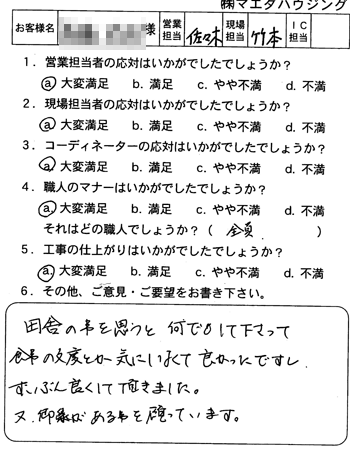 ㈱マエダハウジング
お客様名 様 営業担当 佐々木 現場担当 竹本 IC担当
1．営業担当者の応対はいかがでしたでしょうか？
a. 大変満足 b. 満足 c. やや不満 d. 不満
2．現場担当者の応対はいかがでしたでしょうか？
a. 大変満足 b. 満足 c. やや不満 d. 不満
3．コーディネーターの応対はいかがでしたでしょうか？
a. 大変満足 b. 満足 c. やや不満 d. 不満
4．職人のマナーはいかがでしたでしょうか？
a. 大変満足 b. 満足 c. やや不満 d. 不満
それはどの職人でしょうか？（ 全員 ）
5．工事の仕上がりはいかがでしたでしょうか？
a. 大変満足 b. 満足 c. やや不満 d. 不満
6．その他、ご意見・ご要望をお書き下さい。
田舎の事を思うと 何でもして下さって
食事の支度とか 気にしなくて 良かったですし
ずいぶん良くして頂きました。
又、ある事を願っています。